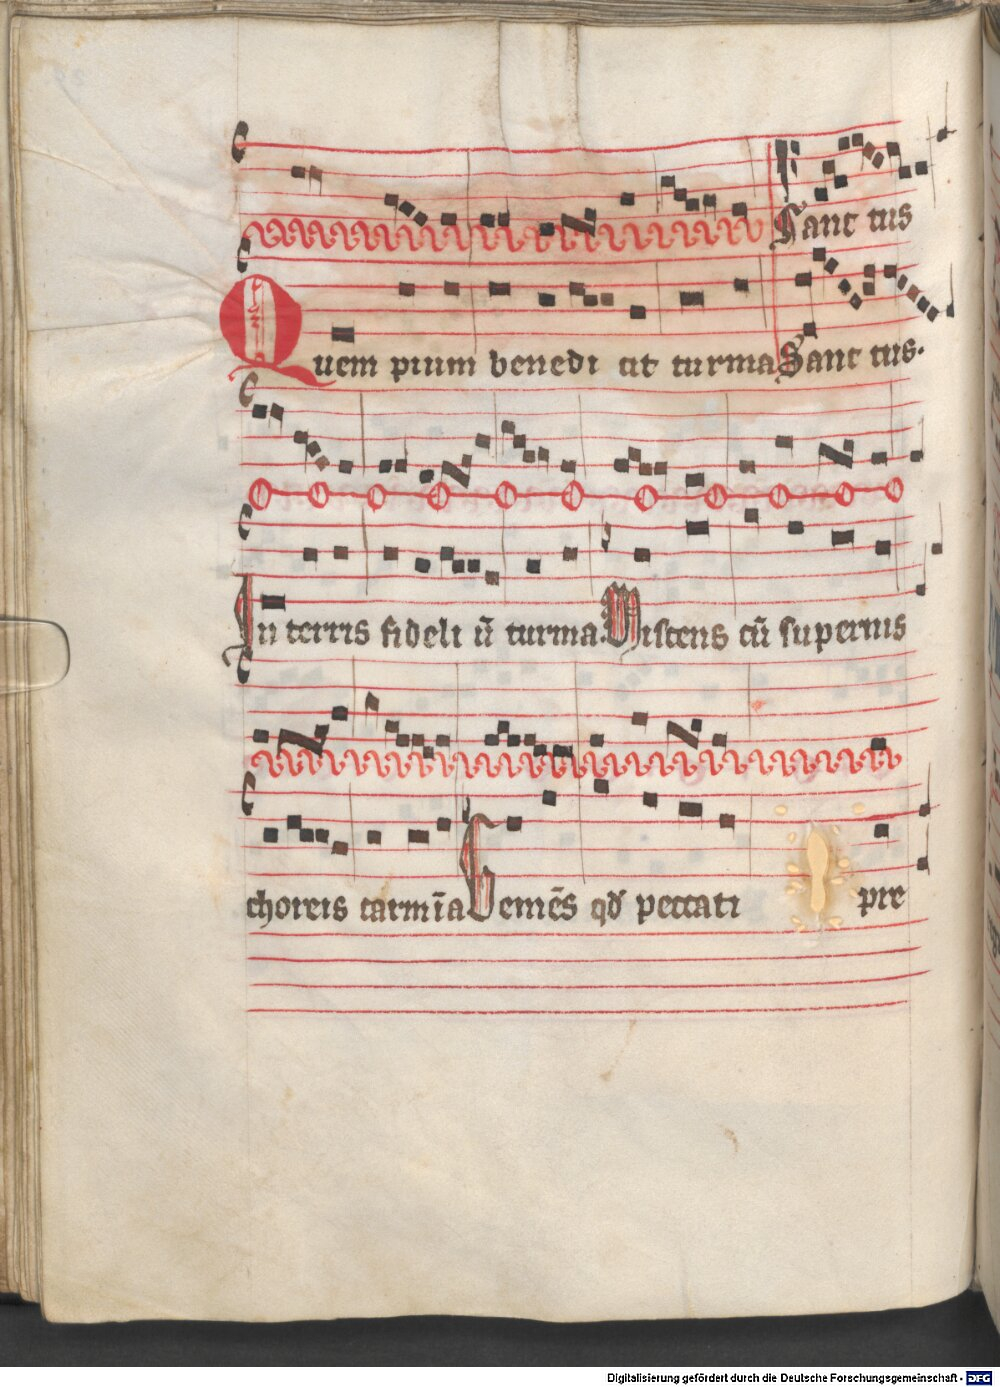 Sanctus
Quem pium benedicit turma Sanctus.
In terris fideliū turma. Miscens cū supernis
choreis carmīa Gemēs qđ peccati pre
Digitalisierung gefördert durch die Deutsche Forschungsgemeinschaft - DFG